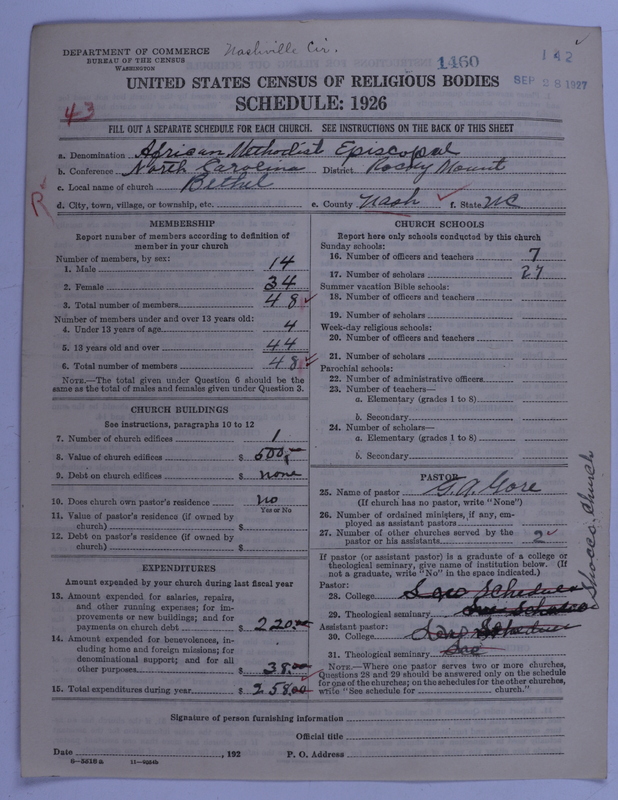 DEPARTMENT OF COMMERCE
BUREAU OF THE CENSUS
WASHINGTON
Nashville Cir.
1460
142
SEP 28 1927
UNITED STATES CENSUS OF RELIGIOUS BODIES
SCHEDULE: 1926
43
FILL OUT A SEPARATE SCHEDULE FOR EACH CHURCH. SEE INSTRUCTIONS ON THE BACK OF THIS SHEET
a. Denomination African Methodist Episcopal
b. Conference North Carolina District Rocky Mount
c. Local name of church Bethel
d. City, town, village, or township, etc. e. County Nash f. State NC
R
MEMBERSHIP
Report number of members according to definition of
member in your church
Number of members, by sex:
1. Male 14
2. Female 34
3. Total number of members 48
Number of members under and over 13 years old:
4. Under 13 years of age 4
5. 13 years old and over 44
6. Total number of members 48
NOTE.—The total given under Question 6 should be the
same as the total of males and females given under Question 3.
CHURCH BUILDINGS
See instructions, paragraphs 10 to 12
7. Number of church edifices 1
8. Value of church edifices $ 500.00
9. Debt on church edifices $ none
10. Does church own pastor's residence no
Yes or No
11. Value of pastor's residence (if owned by
church) $
12. Debt on pastor's residence (if owned by
church) $
EXPENDITURES
Amount expended by your church during last fiscal year
13. Amount expended for salaries, repairs,
and other running expenses; for im-
provements or new buildings; and for
payments on church debt $ 220.00
14. Amount expended for benevolences, in-
cluding home and foreign missions; for
denominational support; and for all
other purposes $ 38.00
15. Total expenditures during year $ 258.00
CHURCH SCHOOLS
Report here only schools conducted by this church
Sunday schools:
16. Number of officers and teachers 7
17. Number of scholars 27
Summer vacation Bible schools:
18. Number of officers and teachers
19. Number of scholars
Week-day religious schools:
20. Number of officers and teachers
21. Number of scholars
Parochial schools:
22. Number of administrative officers
23. Number of teachers—
a. Elementary (grades 1 to 8)
b. Secondary
24. Number of scholars—
a. Elementary (grades 1 to 8)
b. Secondary
PASTOR
25. Name of pastor G. A. Gore
(If church has no pastor, write "None")
26. Number of ordained ministers, if any, em-
ployed as assistant pastors
27. Number of other churches served by the
pastor or his assistants 2
If pastor (or assistant pastor) is a graduate of a college or
theological seminary, give name of institution below. (If
not a graduate, write "No" in the space indicated.)
Pastor:
28. College
29. Theological seminary
Assistant pastor:
30. College
31. Theological seminary
NOTE.—Where one pastor serves two or more churches,
Questions 28 and 29 should be answered only on the schedule
for one of the churches; on the schedules for the other churches,
write "See schedule for church."
Church
Signature of person furnishing information
Official title
Date , 192 P. O. Address